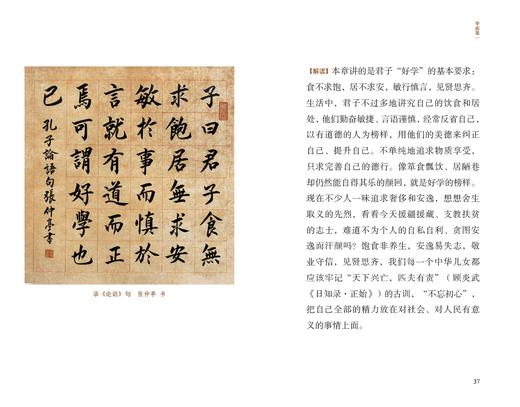 子曰君子食無
求飽居無求安
敏於事而慎於
言就有道而正
焉可謂好學也
已
孔子論語句張仲亭書
录《论语》句 张仲亭 书
【解读】本章讲的是君子“好学”的基本要求：
食不求饱，居不求安，敏行慎言，见贤思齐。
生活中，君子不过多地讲究自己的饮食和居
处，他们勤奋敏捷、言语谨慎，经常反省自己，
以有道德的人为榜样，用他们的美德来纠正
自己、提升自己。不单纯地追求物质享受，
只求完善自己的德行。像箪食瓢饮、居陋巷
却仍然能自得其乐的颜回，就是好学的榜样。
现在不少人一味追求奢华、安逸，想想舍生
取义的先烈，看看今天援疆援藏、支教扶贫
的志士，难道不为个人的自私自利、贪图安
逸而汗颜吗？饱食非养生，安逸易失志，敬
业守信，见贤思齐，我们每一个中华儿女都
应该牢记“天下兴亡，匹夫有责”（顾炎武
《日知录·正始》）的古训，“不忘初心”，
把自己全部的精力放在对社会、对人民有意
义的事情上面。
37